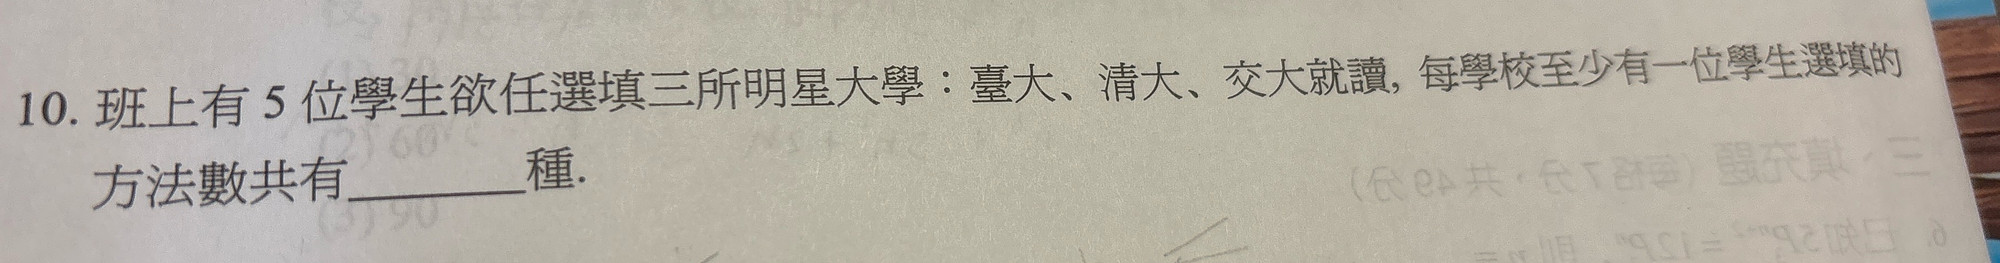 10. 班上有 5 位學生欲任選填三所明星大學：臺大、清大、交大就讀, 每學校至少有一位學生選填的
方法數共有________種.